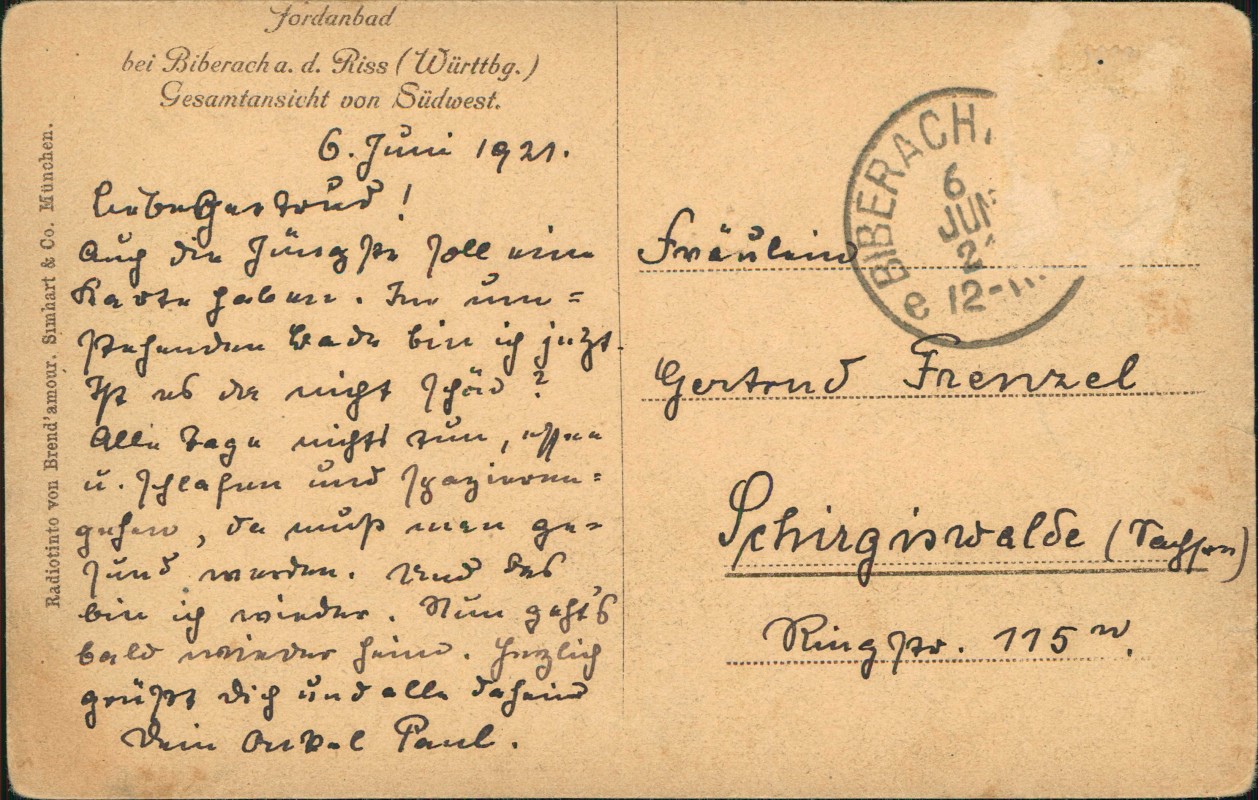 Jordanbad
bei Biberach a. d. Riss (Württbg.)
Gesamtansicht von Südwest.
Radiotinto von Brend'amour. Simhart & Co. München.
6. Juni 1921.
Liebe Gertrud!
Auch die Jüngste soll eine
Karte haben. Im um=
stehenden Bade bin ich jetzt.
Ist es da nicht schön?
Alle Tage nichts tun, essen
u. schlafen und spazieren=
gehen, da muß man ge=
sund werden. Und das
bin ich wieder. Nun geht's
bald wieder heim. Herzlich
grüßt Dich und alle daheim
Dein Onkel Paul.
BIBERACH.
6
JUN
2
12-
e
Fräulein
Gertrud Frenzel
Schirgiswalde (Sachsen)
Ringstr. 115